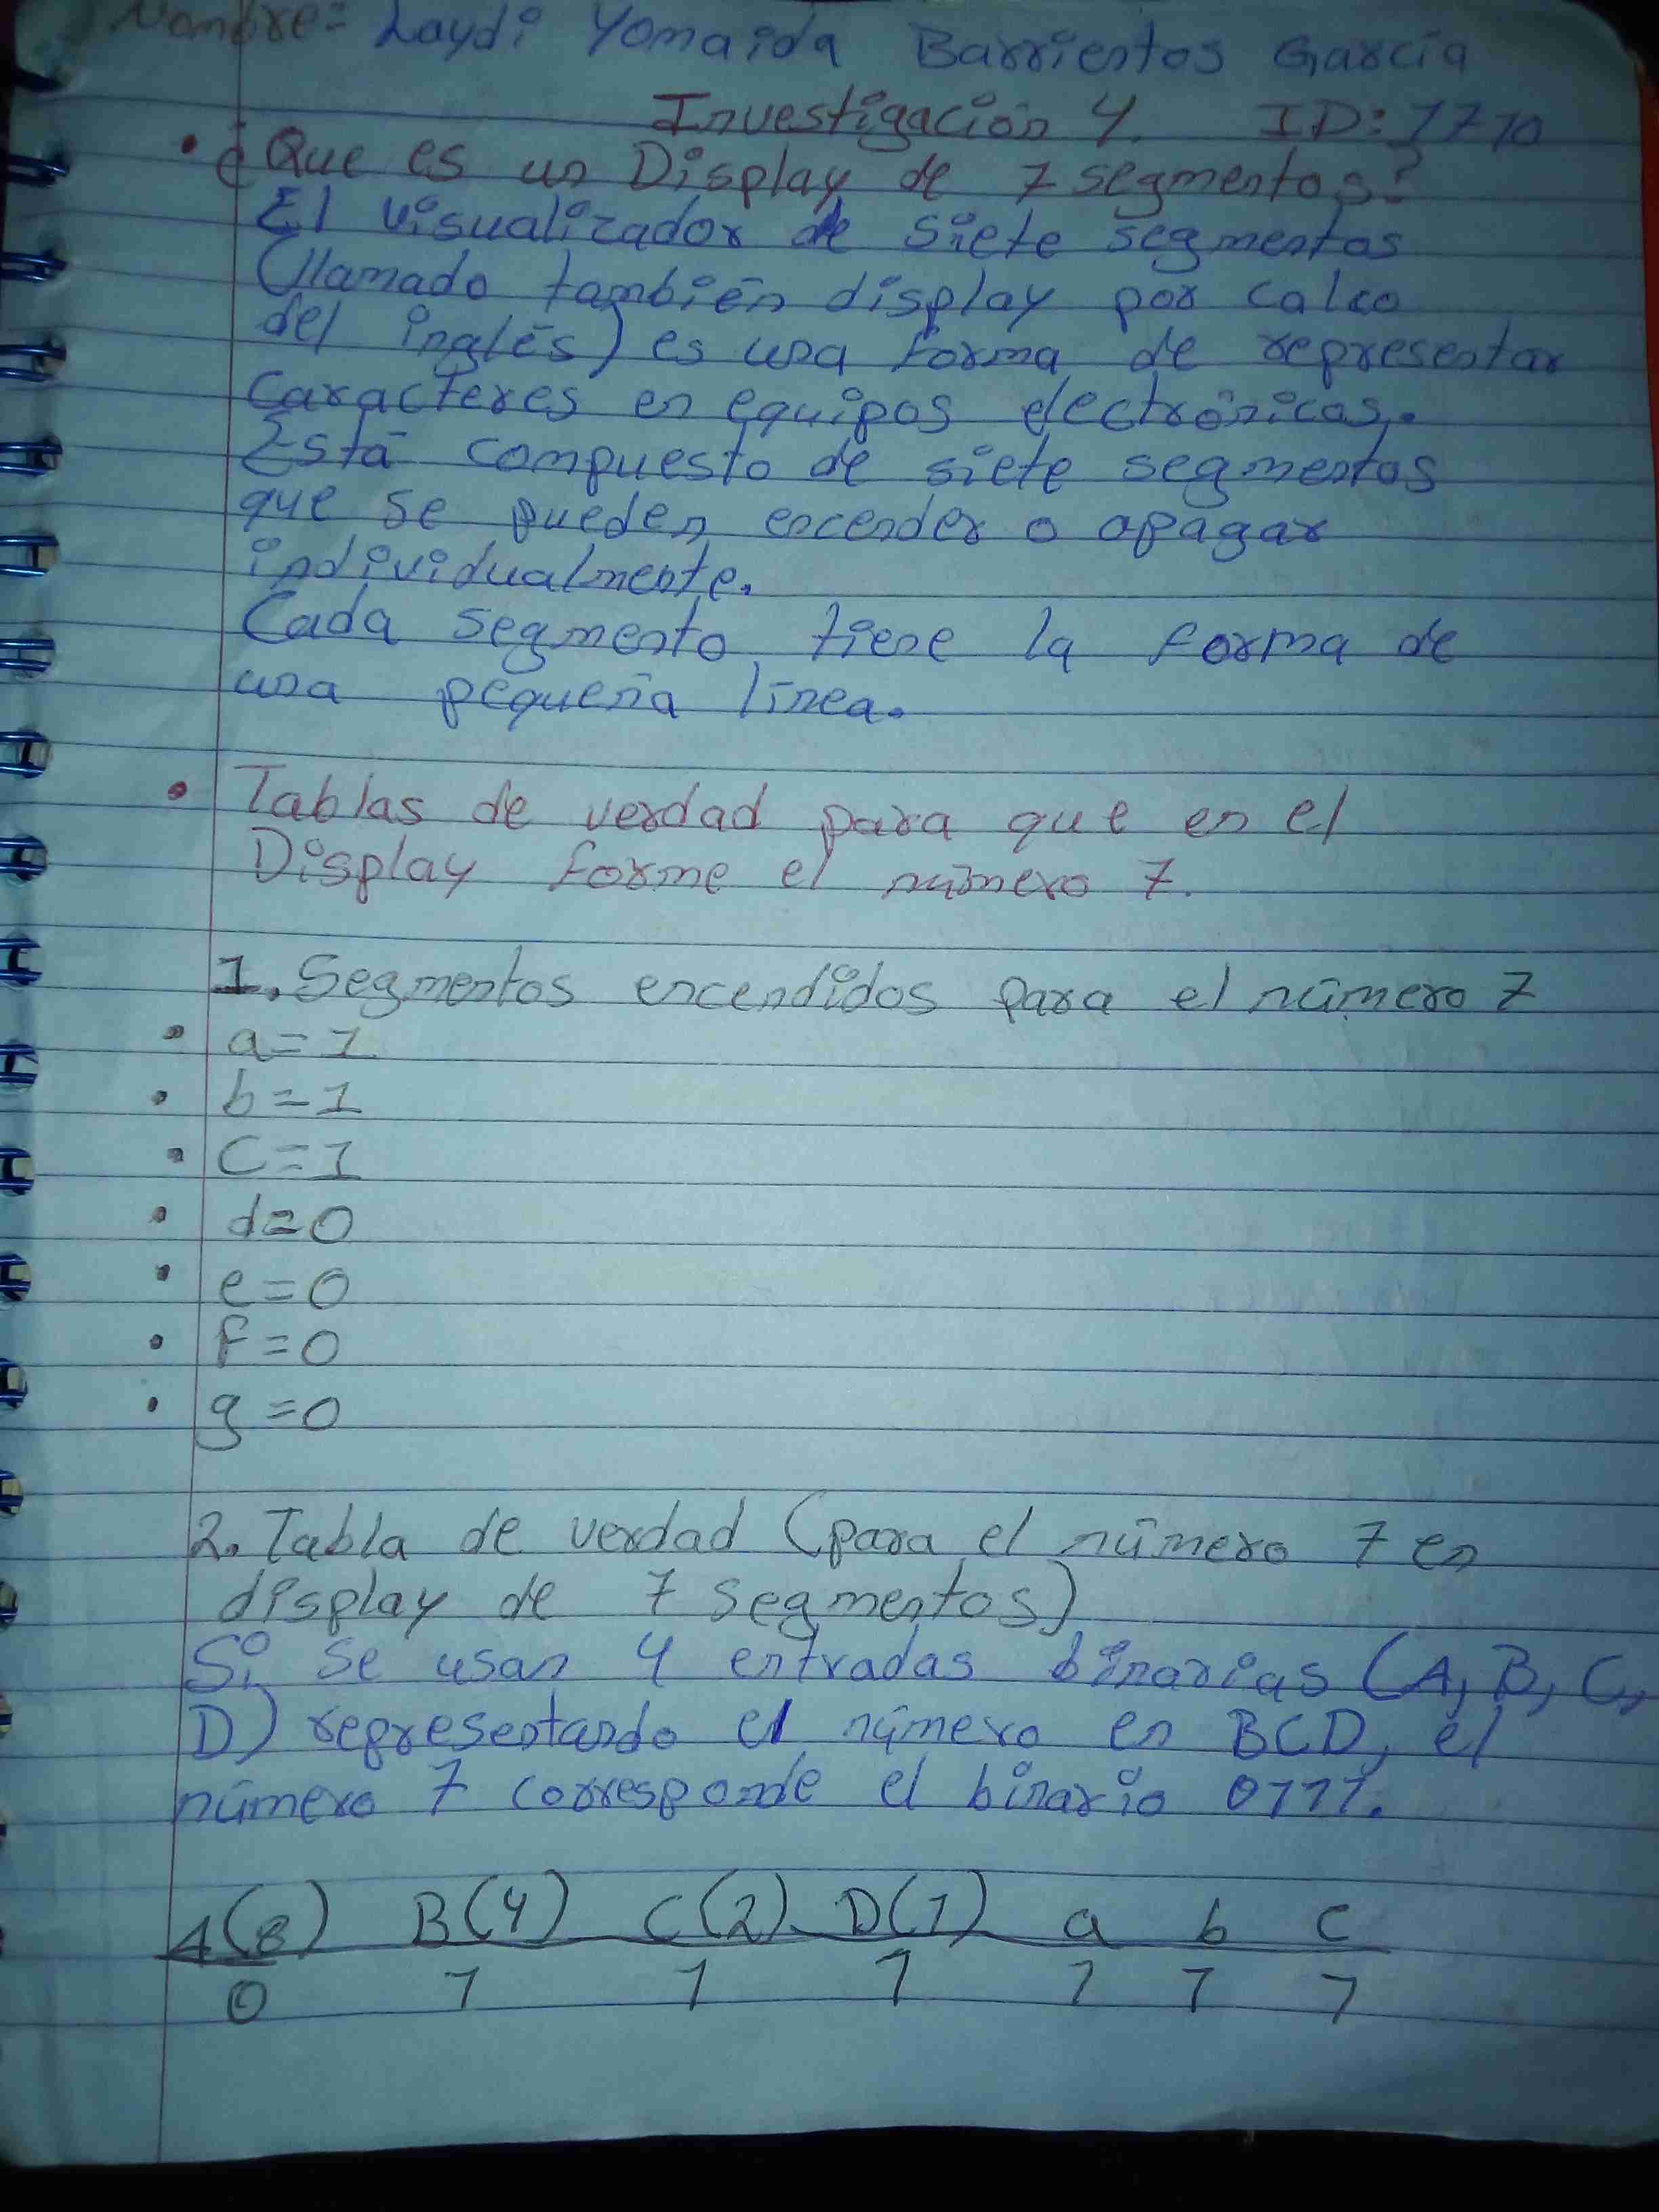 Nombre= Laydi Yomaida Barrientos García
Investigación 4. ID: 1710
• ¿Que es un Display de 7 segmentos?
El visualizador de siete segmentos
(llamado también display por calco
del inglés) es una forma de representar
caracteres en equipos electrónicos.
Está compuesto de siete segmentos
que se pueden encender o apagar
individualmente.
Cada segmento, tiene la forma de
una pequeña línea.
• Tablas de verdad para que en el
Display forme el número 7.
1. Segmentos encendidos para el número 7
• a=1
• b=1
• C=1
• d=0
• e=0
• f=0
• g=0
2. Tabla de verdad (para el número 7 en
display de 7 segmentos)
Si se usan 4 entradas binarias (A, B, C,
D) representando el número en BCD, el
número 7 corresponde el binario 0111.
A(8) B(4) C(2) D(1) a b c
0 1 1 1 1 1 1